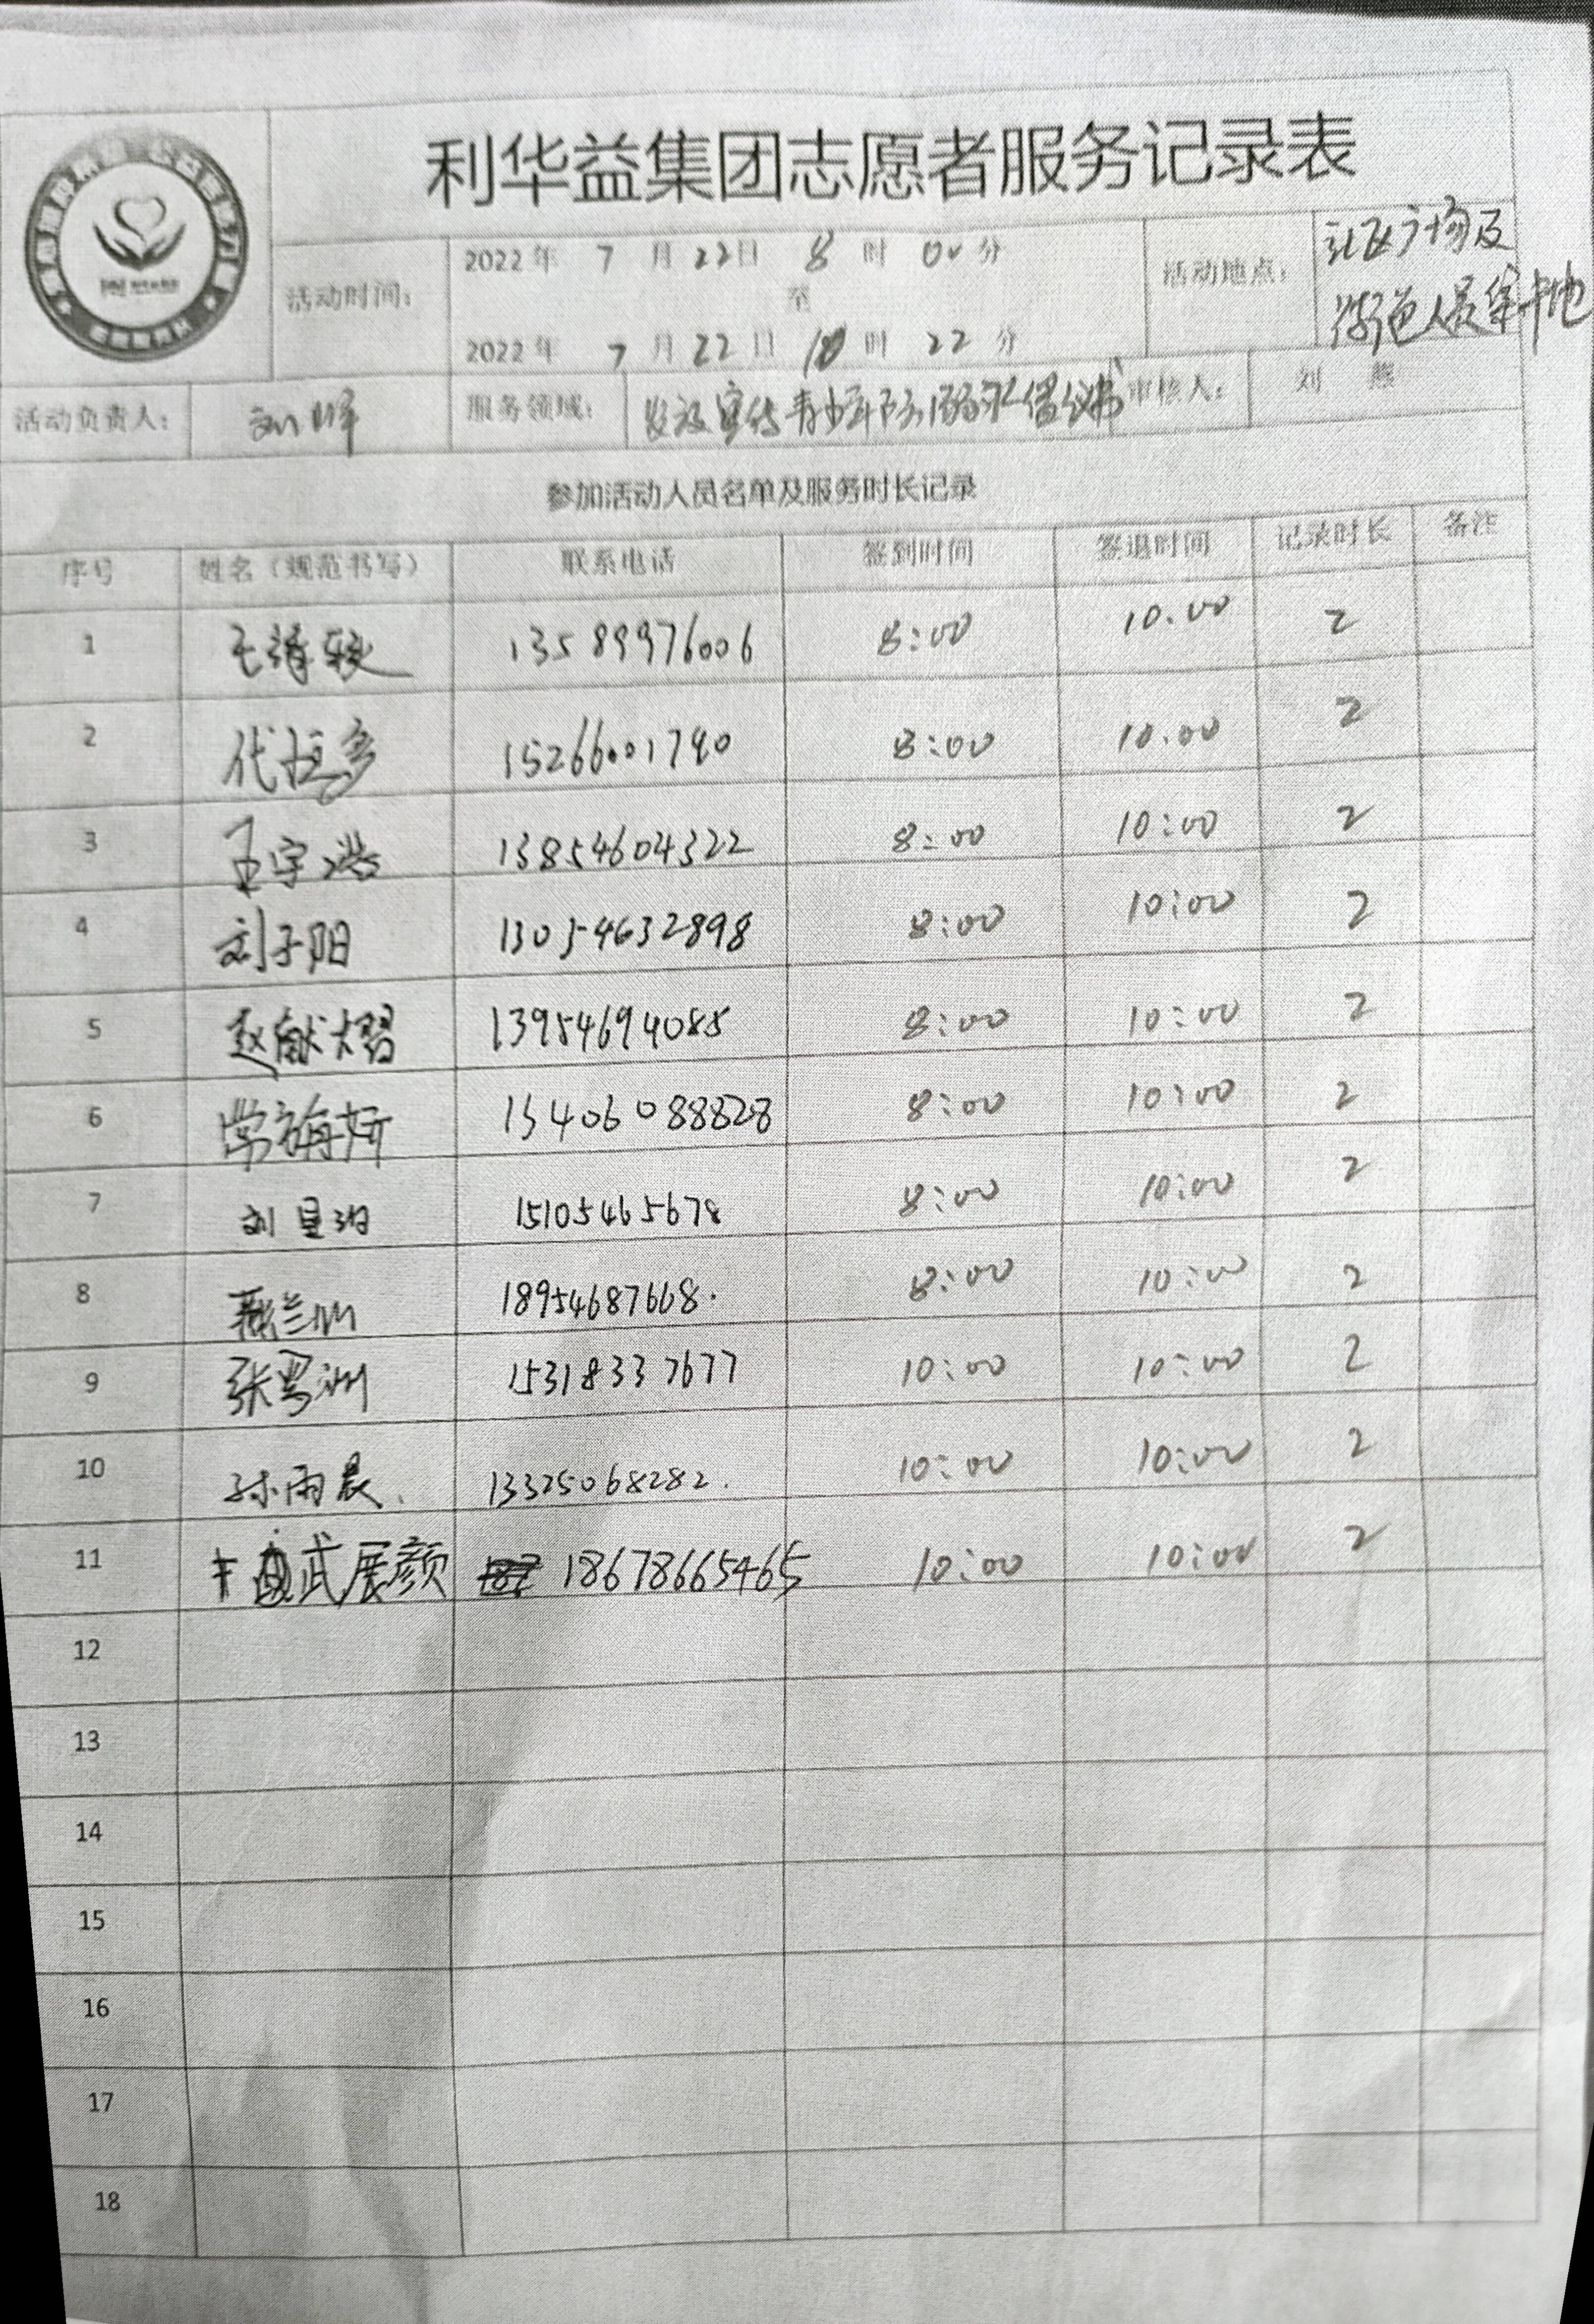 利华益集团志愿者服务记录表
活动时间：
2022年 7 月 22日 8 时 00 分
至
2022年 7 月 22日 10 时 22 分
活动地点： 广场及
人员集中地
活动负责人： 刘晖 服务领域： 发放宣传青少年防溺水倡议书 审核人： 刘燕
参加活动人员名单及服务时长记录
序号 姓名（规范书写） 联系电话 签到时间 签退时间 记录时长 备注
1 13589976006 8:00 10.00 2
2 代恒多 15266001790 8:00 10.00 2
3 王宇浩 13854604322 8:00 10:00 2
4 刘子阳 13054632898 8:00 10:00 2
5 赵猷熠 13954694085 8:00 10:00 2
6 常海妍 15406088828 8:00 10:00 2
7 刘星 15105465678 8:00 10:00 2
8 18954687668. 8:00 10:00 2
9 张 15318337677 10:00 10:00 2
10 孙雨晨. 13325068282. 10:00 10:00 2
11 武展颜 18678665465 10:00 10:00 2
12
13
14
15
16
17
18